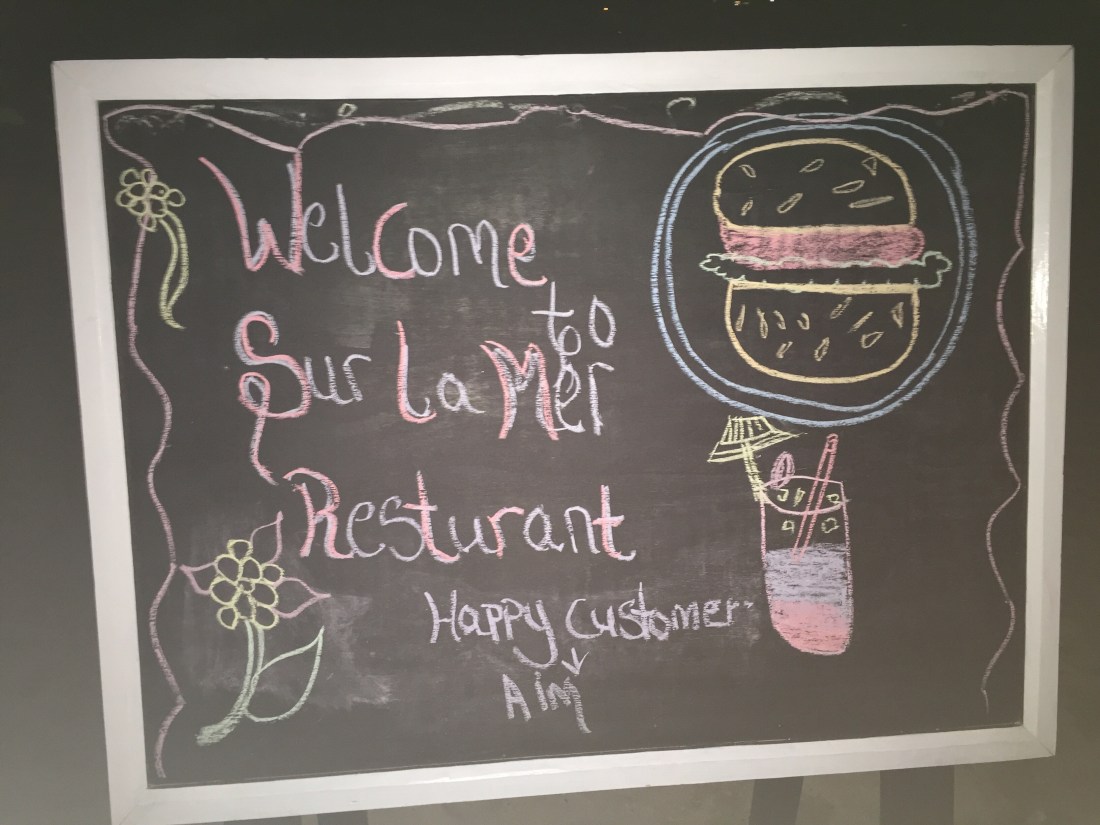 Welcome
to
Sur La Mer
Resturant
Happy Customer
Aim